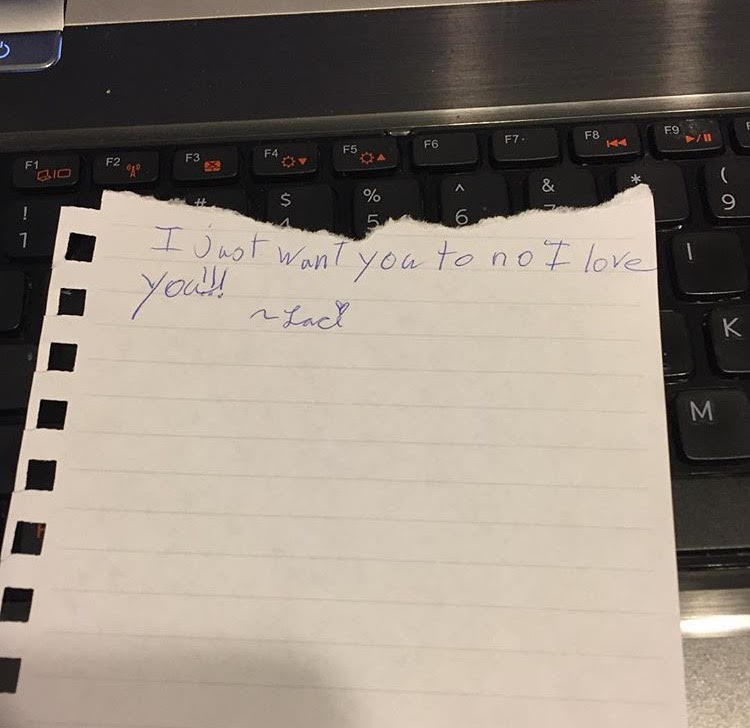 F1 F2 F3 F4 F5 F6 F7 F8 F9
! # $ % ^ & * (
1 5 6 9
I
K
M
I just want you to no I love
you!!!
~Laci